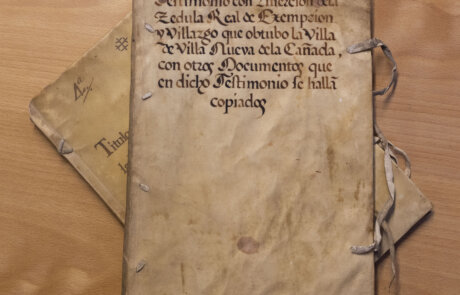 Testimonio con Inzercion de la
Zedula Real de Exempcion
y Villazgo que obtubo la Villa
de Villa Nueva de la Cañada,
con otros Documentos que
en dicho Testimonio se hallã
copiados
4ª
Titulo